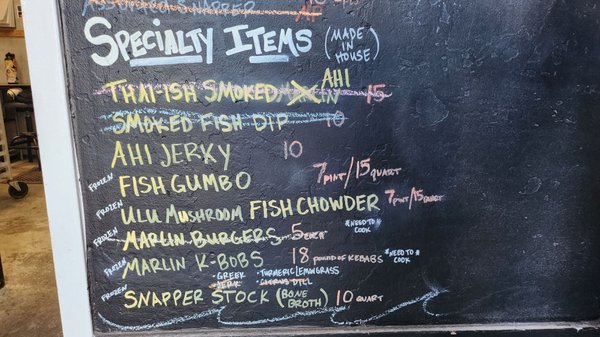 Specialty Items (MADE IN HOUSE)
AHI
SMOKED 15
SMOKED FISH DIP 10
AHI JERKY 10
FROZEN FISH GUMBO 7 PINT / 15 QUART
FROZEN ULU MUSHROOM FISH CHOWDER 7 PINT / 15 QUART
FROZEN MARLIN BURGERS 5 EACH *NEED TO COOK*
FROZEN MARLIN K-BOBS 18 POUND OF KEBABS *NEED TO COOK*
• GREEK • TURMERIC LEMONGRASS
• JERK • CITRUS DILL
FROZEN SNAPPER STOCK (BONE BROTH) 10 QUART